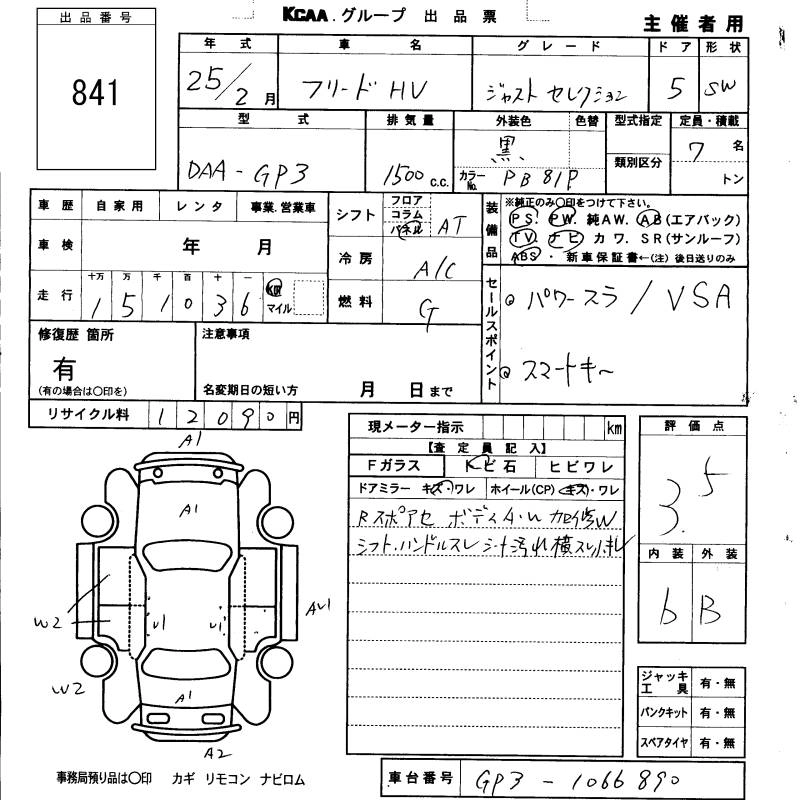 出品番号
841
KCAA.グループ 出品票
主催者用
年式 車名 グレード ドア 形状
25/2月 フリード HV ジャスト セレクション 5 SW
型式 排気量 外装色 色替 型式指定 定員・積載
DAA-GP3 1500c.c. 黒 類別区分 7名
カラーNo. PB81P トン
車歴 自家用 レンタ 事業.営業車
車検 年 月
走行 十万 万 千 百 十 一
1 5 1 0 3 6 km マイル
シフト フロア コラム パネル AT
冷房 A/C
燃料 G
装備品
※純正のみ〇印をつけて下さい。
PS. PW. 純AW. AB(エアバック)
TV. ナビ カワ. SR(サンルーフ)
ABS・新車保証書←(注) 後日送りのみ
セールスポイント
パワースラ / VSA
スマートキー
修復歴 箇所
有
(有の場合は〇印を)
注意事項
名変期日の短い方 月 日まで
リサイクル料 12090円
現メーター指示 km
【査定員記入】
Fガラス トビ石 ヒビワレ
ドアミラー キズ・ワレ ホイール(CP) キズ・ワレ
Rスポアセ ボディA・U 加修W
シフト.ハンドルスレ シート汚れ横スレ
評価点
3.5
内装 外装
b B
A1
A1
W2
U1 U1
AU1
W2
A1
A2
ジャッキ工具 有・無
パンクキット 有・無
スペアタイヤ 有・無
事務局預り品は〇印 カギ リモコン ナビロム
車台番号 GP3-1066890